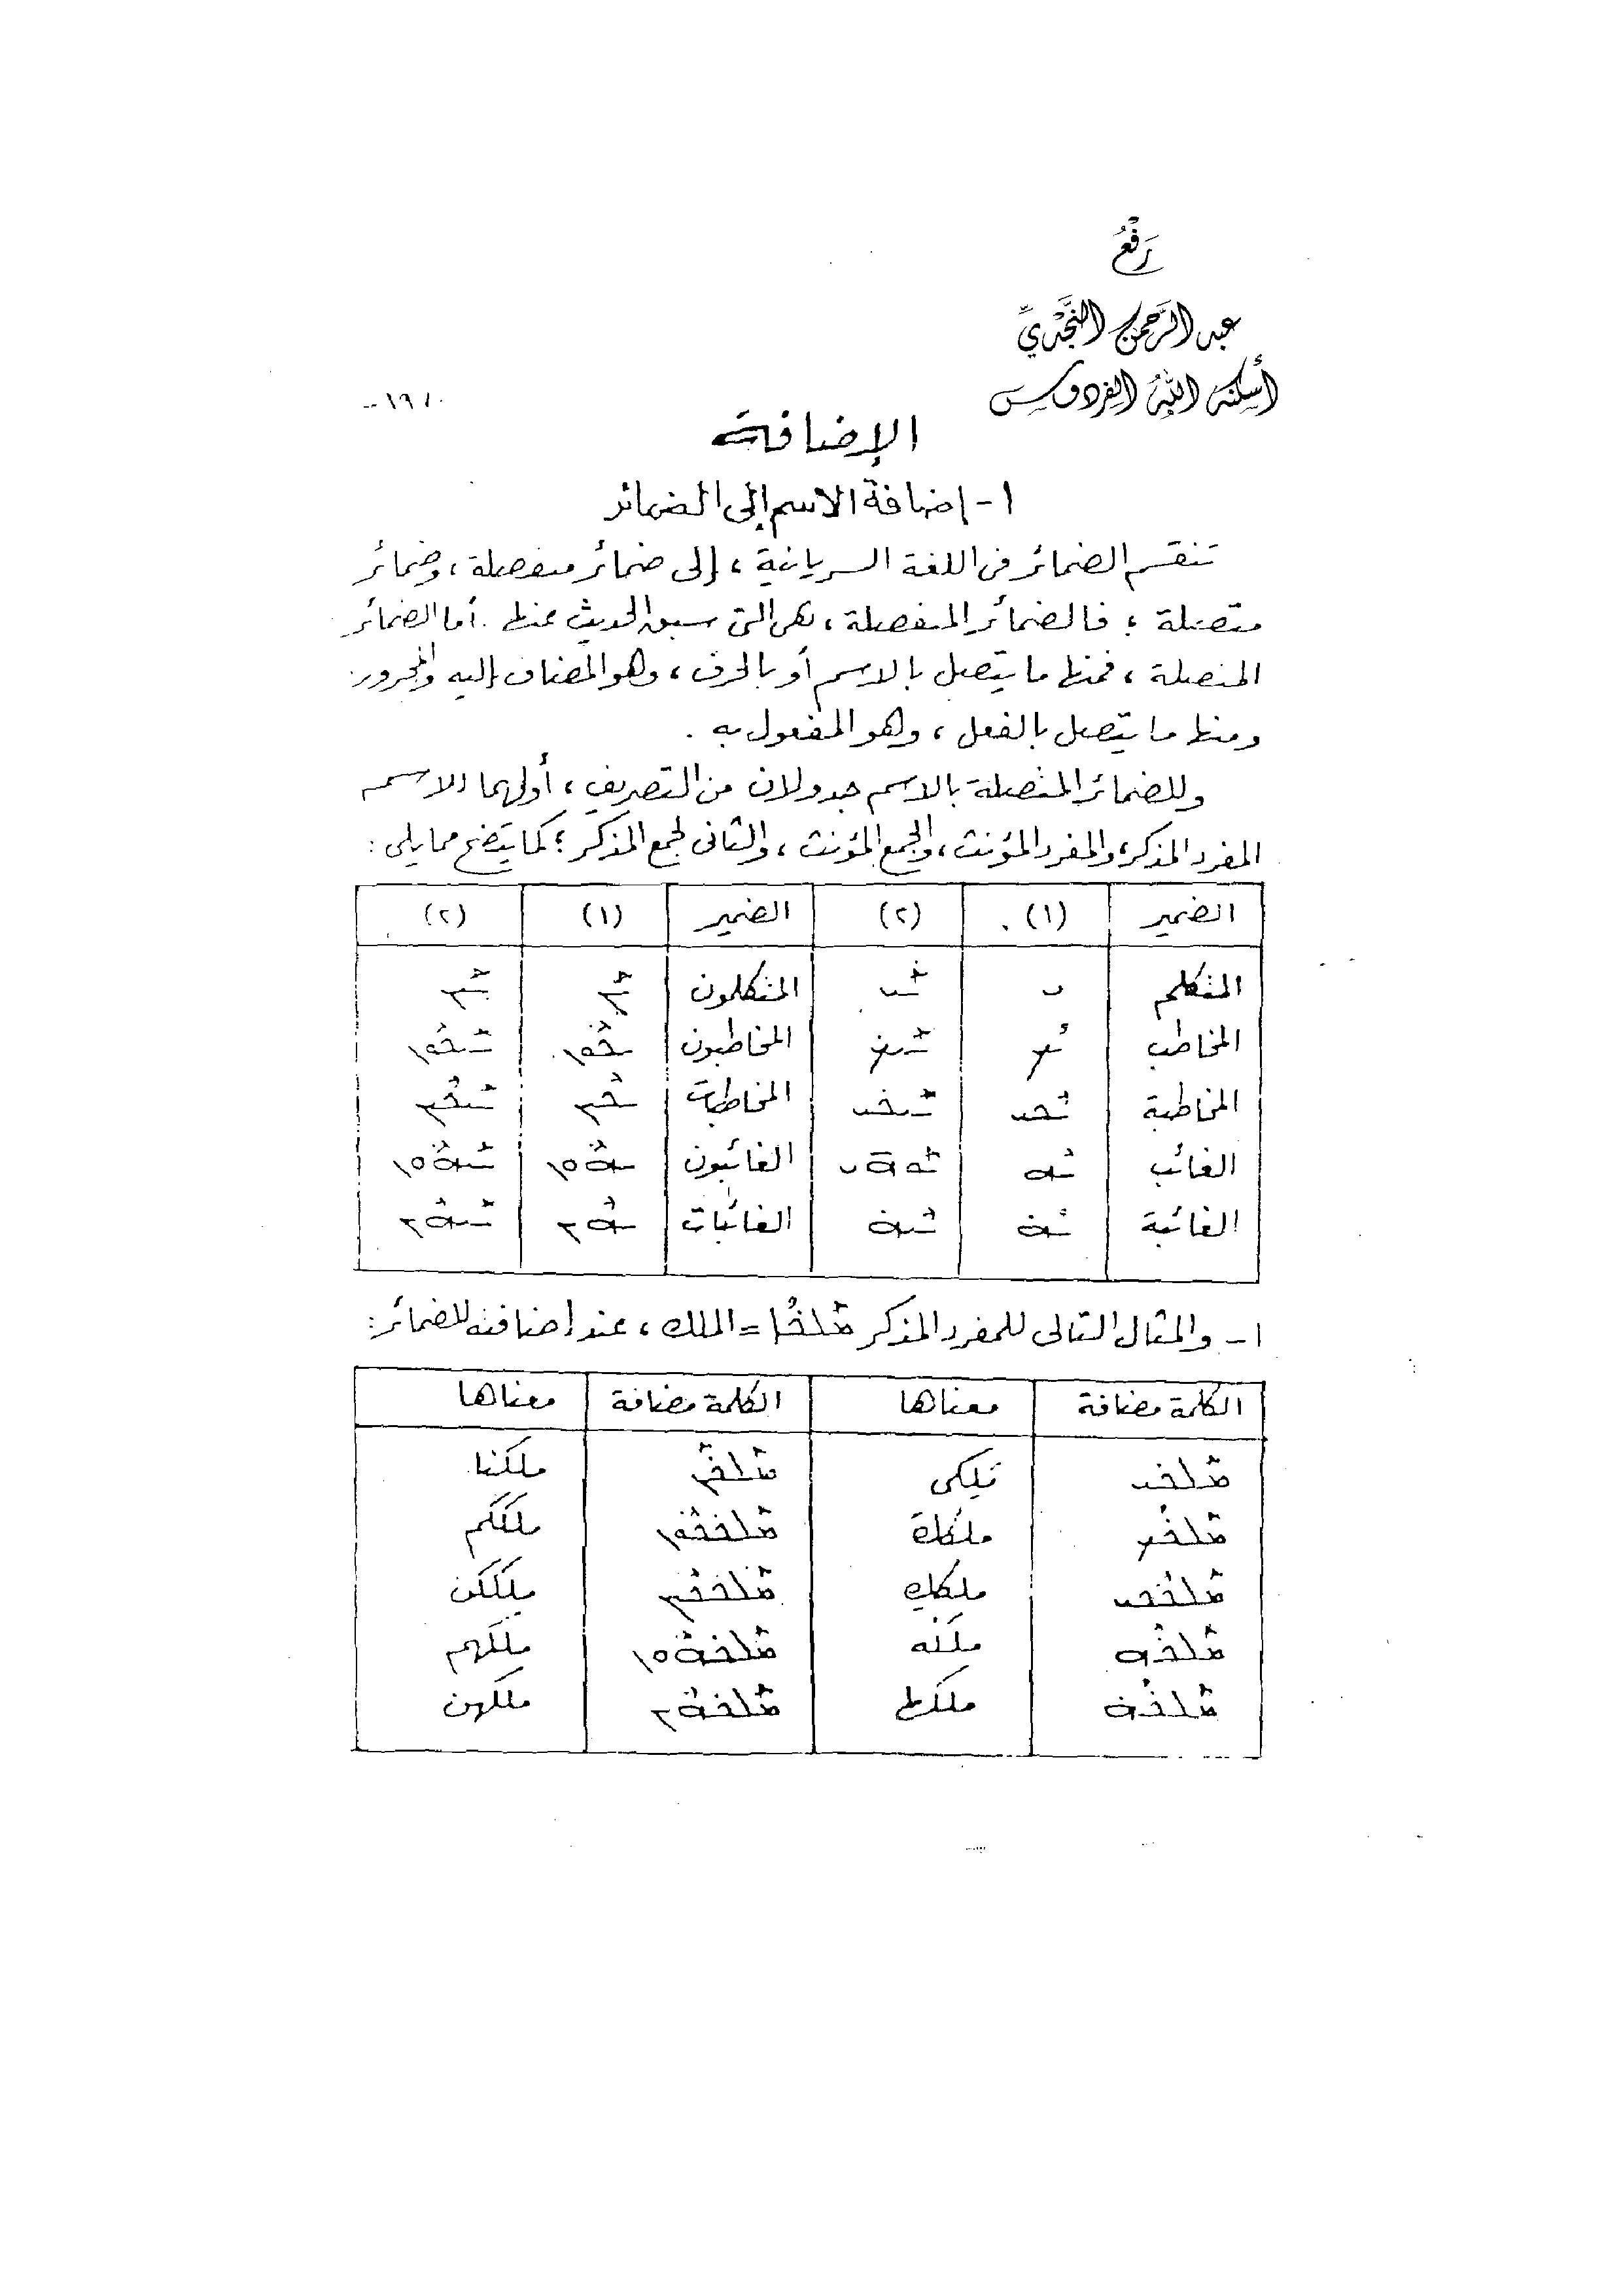 رَفْعُ
عبد الرَّحمن النَّجْديِّ
أسكنه اللهُ الفردوس
الإضافة
١- إضافة الاسم إلى الضمائر
تنقسم الضمائر فى اللغة السريانية ، إلى ضمائر منفصلة ، وضمائر
متصلة ؛ فالضمائر المنفصلة ، هى التى سبق الحديث عنها . أما الضمائر
المتصلة ، فمنها ما يتصل بالاسم أو بالحرف ، وهو المضاف إليه والمجرور
ومنها ما يتصل بالفعل ، وهو المفعول به .
وللضمائر المتصلة بالاسم جدولان من التصريف ، أولهما للاسم
المفرد المذكر ، والمفرد المؤنث ، والجمع المؤنث ، والثانى لجمع المذكر ؛ كما يتضح مما يلى :
الضمير (١) (٢) الضمير (١) (٢)
المتكلم ܝ ܰܝ المتكلمون ܰܢ ܰܝܢ
المخاطب ܳܟ ܰܝܟ المخاطبون ܟܽܘܢ ܰܝܟܽܘܢ
المخاطبة ܶܟܝ ܰܝܟܝ المخاطبات ܟܶܝܢ ܰܝܟܶܝܢ
الغائب ܶܗ ܰܘܗܝ الغائبون ܗܽܘܢ ܰܝܗܽܘܢ
الغائبة ܳܗ ܶܝܗ الغائبات ܗܶܝܢ ܰܝܗܶܝܢ
١- والمثال التالى للمفرد المذكر ܡܰܠܟܳܐ = الملك ، عند إضافته للضمائر :
الكلمة مضافة معناها الكلمة مضافة معناها
ܡܰܠܟܝ ملكى ܡܰܠܟܰܢ ملكنا
ܡܰܠܟܳܟ ملكك ܡܰܠܟܟܽܘܢ ملككم
ܡܰܠܟܶܟܝ ملكك ܡܰܠܟܟܶܝܢ ملككن
ܡܰܠܟܶܗ ملكه ܡܰܠܟܗܽܘܢ ملكهم
ܡܰܠܟܳܗ ملكها ܡܰܠܟܗܶܝܢ ملكهن